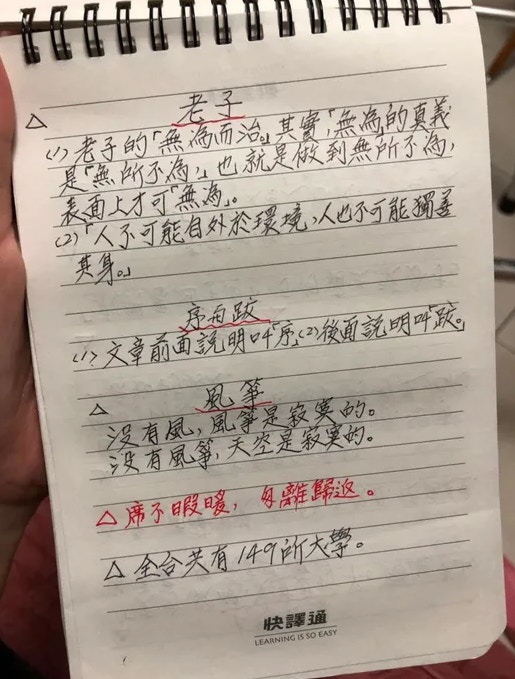 △ 老子
(1) 老子的「無為而治」。其實,「無為」的真義
是「無所不為」,也就是做到無所不為,
表面上才可「無為」。
(2)「人不可能自外於環境,人也不可能獨善
其身。」
序和跋
(1) 文章前面說明叫「序」(2)後面說明叫「跋」。
△ 風箏
沒有風,風箏是寂寞的。
沒有風箏,天空是寂寞的。
△ 席不暇暖,匆離歸返。
△ 全台共有149所大學。
快譯通
LEARNING IS SO EASY